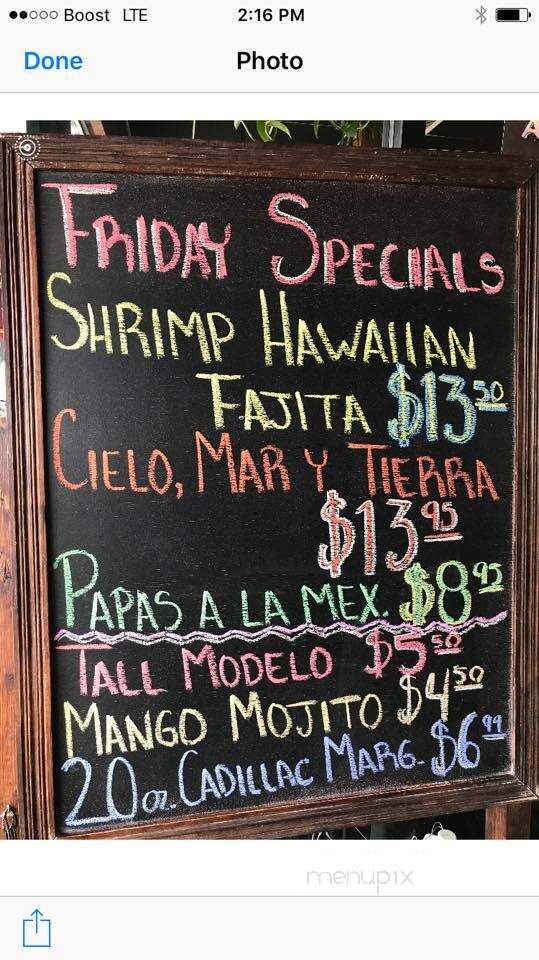 Boost LTE 2:16 PM
Done Photo
FRIDAY SPECIALS
SHRIMP HAWAIIAN
FAJITA $13.50
CIELO, MAR Y TIERRA
$13.95
PAPAS A LA MEX. $8.95
TALL MODELO $5.50
MANGO MOJITO $4.50
20 oz. CADILLAC MARG. $6.99
menupix